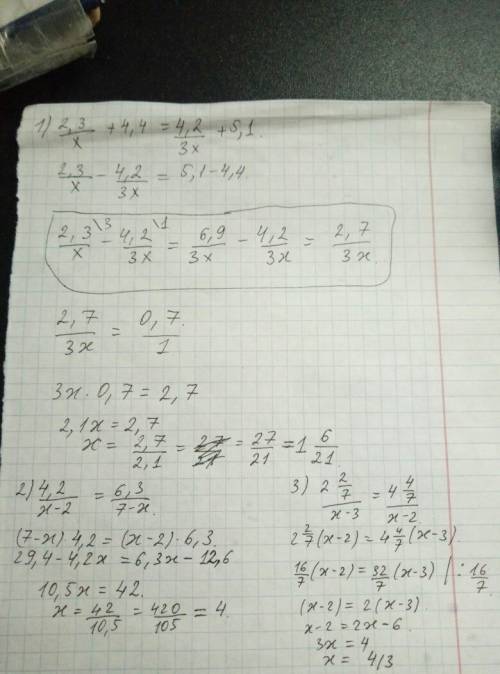 1) 2,3/x + 4,4 = 4,2/3x + 5,1.
2,3/x - 4,2/3x = 5,1 - 4,4
2,3\3/x - 4,2\1/3x = 6,9/3x - 4,2/3x = 2,7/3x.
2,7/3x = 0,7/1
3x · 0,7 = 2,7
2,1x = 2,7
x = 2,7/2,1 = = 27/21 = 1 6/21
2) 4,2/x-2 = 6,3/7-x.
(7-x) 4,2 = (x-2)·6,3
29,4 - 4,2x = 6,3x - 12,6
10,5x = 42.
x = 42/10,5 = 420/105 = 4.
3) 2 2/7/x-3 = 4 4/7/x-2
2 2/7 (x-2) = 4 4/7 (x-3)
16/7 (x-2) = 32/7 (x-3) | : 16/7
(x-2) = 2(x-3)
x-2 = 2x-6.
3x = 4
x = 4/3